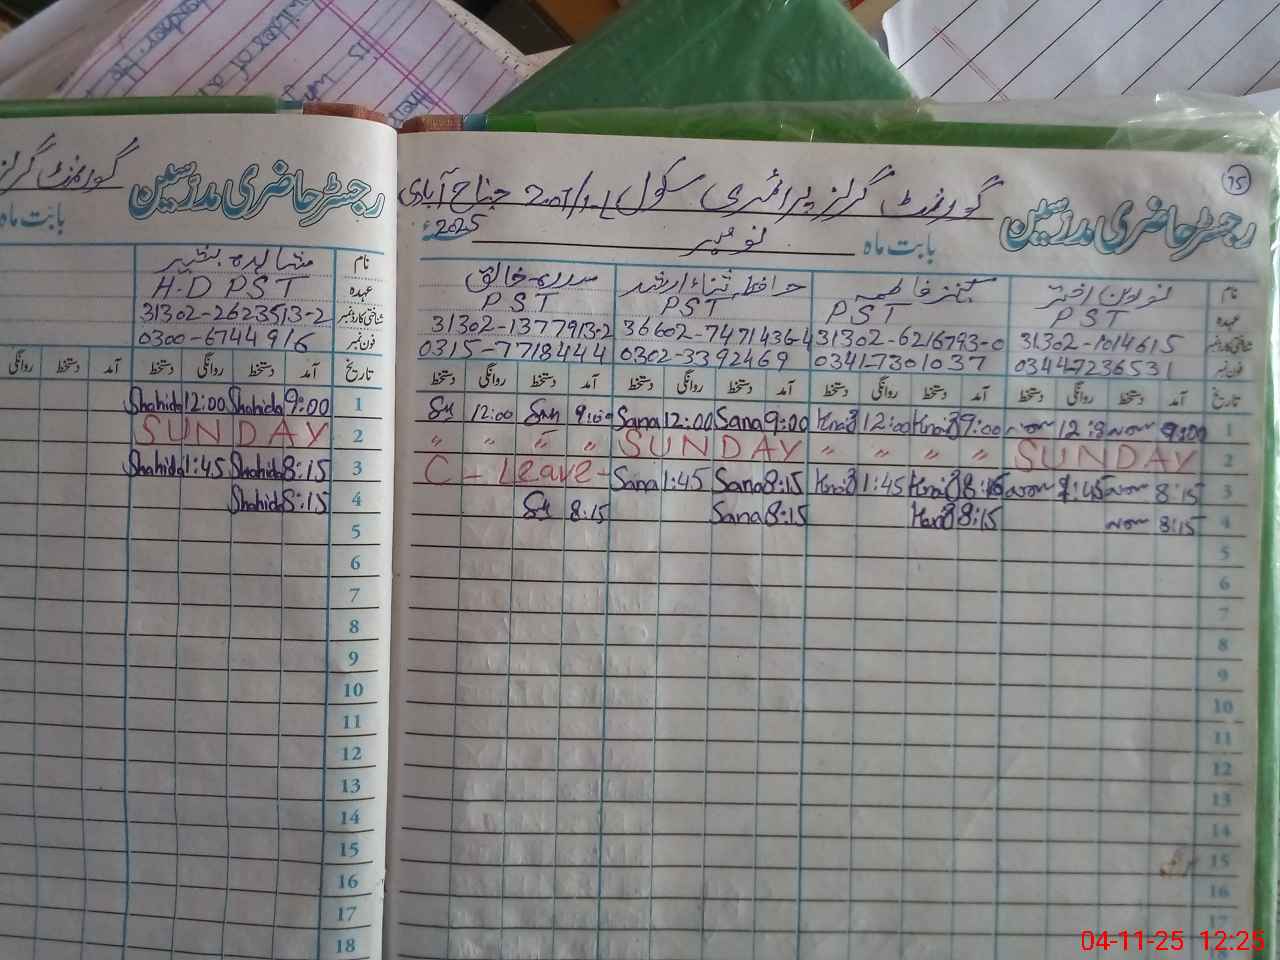 75
رجسٹر حاضری مدرسین گورنمنٹ گرلز پرائمری سکول جناح آبادی
بابت ماہ نومبر 2025ء
نام نورین اختر کنیز فاطمہ حافظہ ثناء ارشد سدرہ خالق
عہدہ PST PST PST PST
شناختی کارڈ نمبر 31302-1014615 31302-6216793-0 36602-7471436-4 31302-1377913-2
فون نمبر 0344-7236531 0341-7301037 0302-3392469 0315-7718444
تاریخ آمد دستخط روانگی دستخط آمد دستخط روانگی دستخط آمد دستخط روانگی دستخط آمد دستخط روانگی دستخط
1 9:00 9:00 12:00 9:00 Sana 12:00 Sana 9:00 12:00
2 SUNDAY " " " " SUNDAY " " " "
3 8:15 1:45 8:15 1:45 8:15 Sana 1:45 Sana C - Leave -
4 8:15 8:15 8:15 Sana 8:15
5
6
7
8
9
10
11
12
13
14
15
16
17
18
رجسٹر حاضری مدرسین گورنمنٹ گرلز
بابت ماہ
نام شاہدہ بشیر
عہدہ H.D PST
شناختی کارڈ نمبر 31302-2623513-2
فون نمبر 0300-6744916
تاریخ آمد دستخط روانگی دستخط آمد دستخط روانگی
1 9:00 Shahida 12:00 Shahida
2 SUNDAY
3 8:15 Shahida 1:45 Shahida
4 8:15 Shahida
5
6
7
8
9
10
11
12
13
14
15
16
17
18
04-11-25 12:25